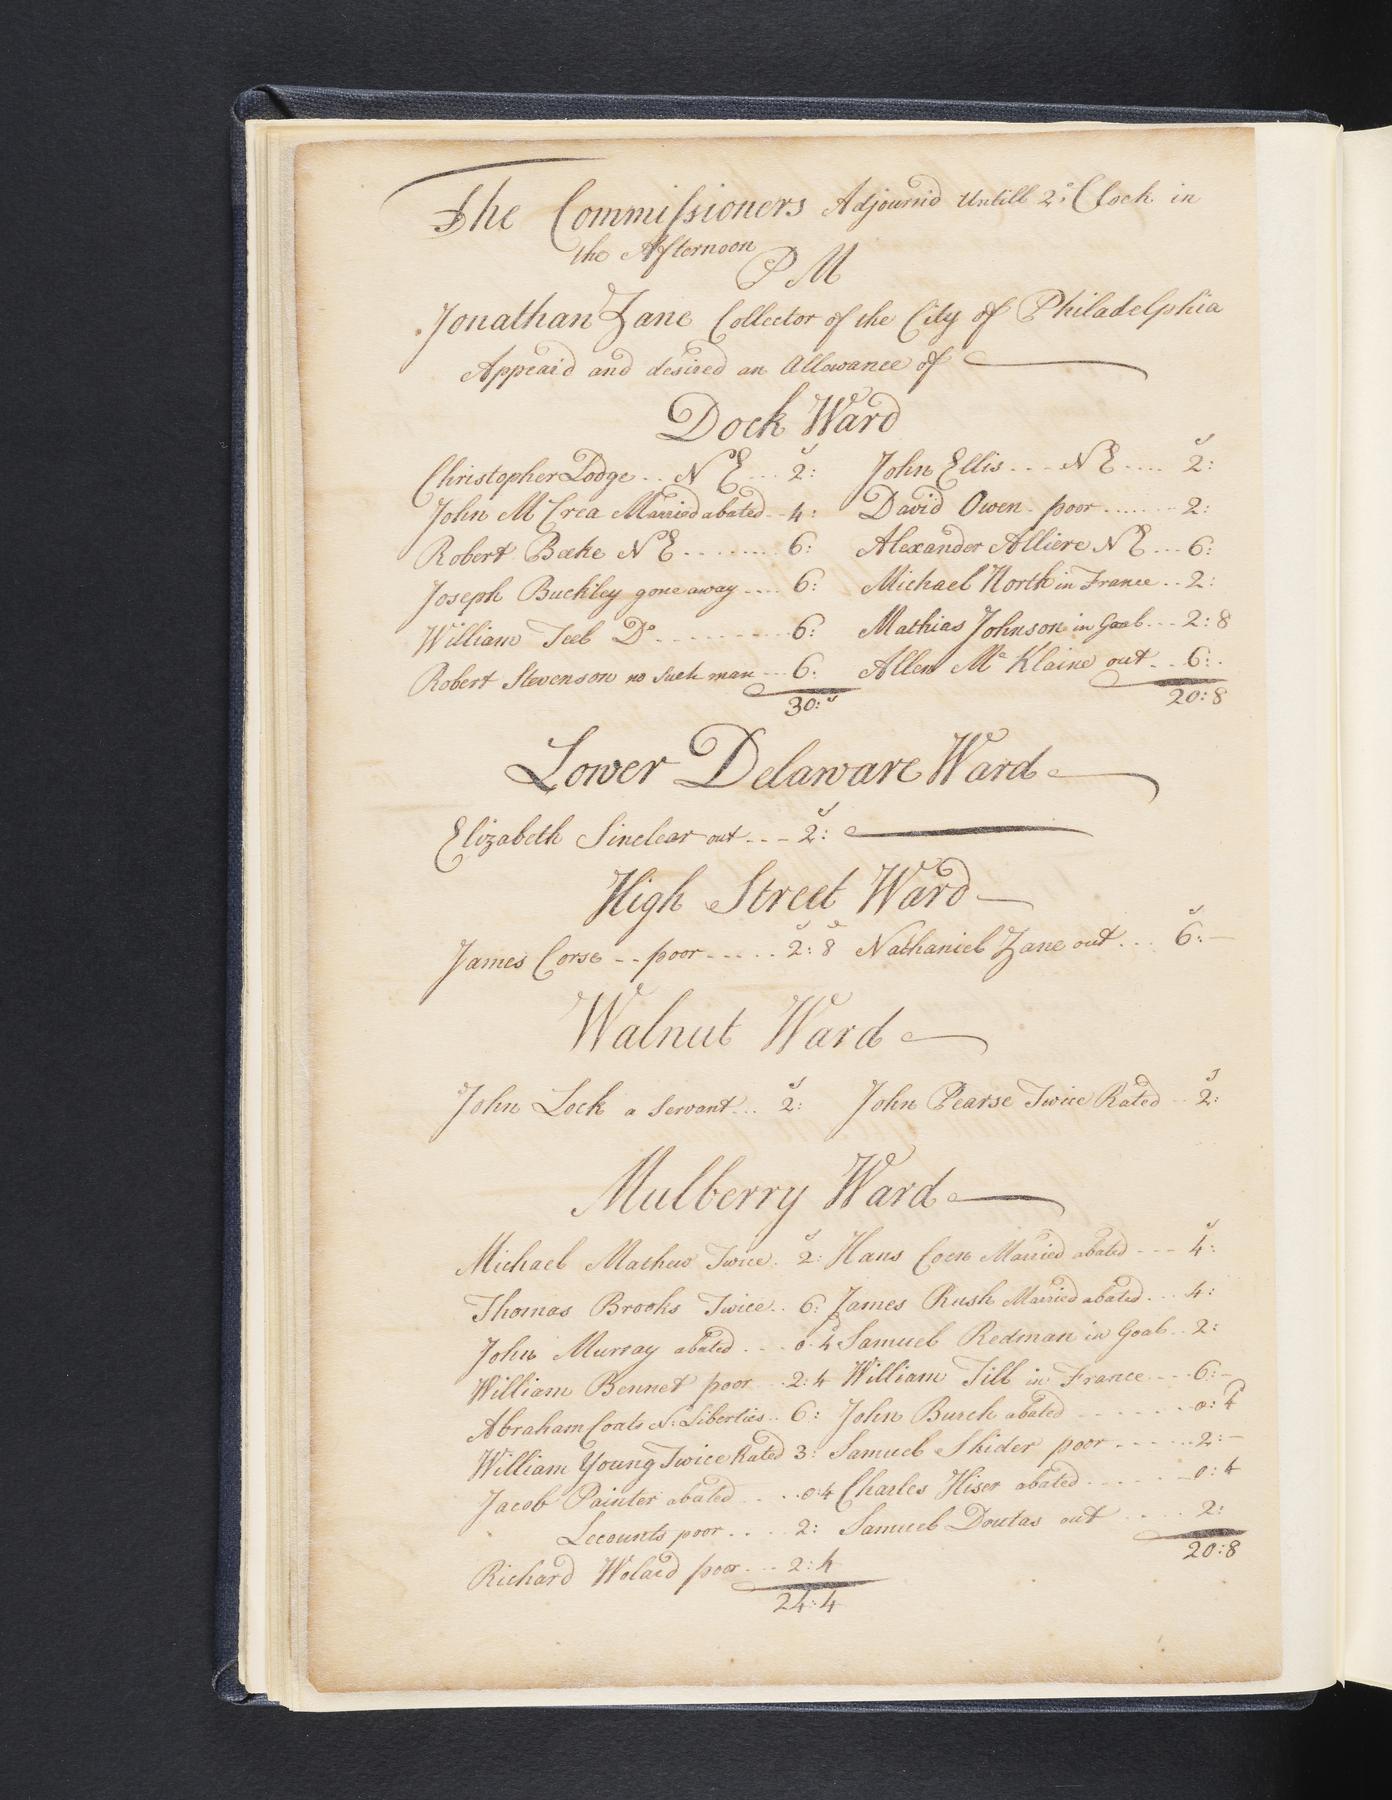 The Commissioners Adjourn'd Untill 2 o'Clock in
the Afternoon
P M
Jonathan Zane Collector of the City of Philadelphia
Appear'd and desired an Allowance of
Dock Ward
Christopher Lodge .. N E ... 2: s John Ellis .... N E .... 2: s
John McCrea Married abated .. 4: David Owen . poor ....... 2:
Robert Boeke N E ......... 6: Alexander Alliere N E ... 6:
Joseph Buckley gone away .... 6: Michael North in France .. 2:
William Teeb Do .......... 6: Mathias Johnson in Goal ... 2:8
Robert Stevenson no such man ... 6: Allen Mc Klaine out .. 6:
30: s 20:8
Lower Delaware Ward
Elizabeth Sinclear out ... 2: s
High Street Ward
James Corse .. poor ..... 2:8 Nathaniel Zane out ... 6: s
Walnut Ward
John Lock a Servant ... 2: s John Pearse Twice Rated .. 2: s
Mulberry Ward
Michael Mathew Twice . 2: s Hans Coen Married abated --- 4: s
Thomas Brooks Twice .. 6: James Rush Married abated ... 4:
John Murray abated ... 0:4 Samuel Redman in Goal .. 2:
William Bennet poor ... 2:4 William Till in France ... 6:-
Abraham Coats N: Liberties .. 6: John Burch abated ....... 0:4
William Young Twice Rated 3: Samuel Skider poor ..... 2:-
Jacob Painter abated .... 0:4 Charles Hiser abated ...... 0:4
Lecounts poor .... 2: Samuel Doutas out ..... 2:
20:8
Richard Wolard poor ... 2:4
24:4